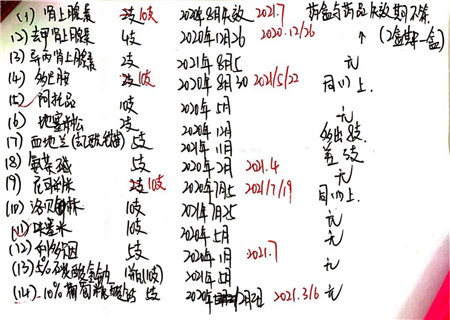 (1) 肾上腺素 2支 10支 2020年8月失效 2021.7 药盒与药品失效期不符
(12) 去甲肾上腺素 4支 2020年12月26 2020.12/26 ↑ (2盒其中一盒)
(3) 异丙肾上腺素 2支 2021年8月5 元
(4) 多巴胺 2支 10支 2020年8月30 2021/5/22 同(1)上.
(5) 阿托品 10支 2020年5月 元
(6) 地塞米松 2支 2020年12月
(7) 西地兰 5支 2021年11月
(8) 氨茶碱 5支 2020年2月 2021.4 元
(9) 尼可刹米 2支 10支 2020年7月5 2021/7/19 同(1)上.
(10) 洛贝林 10支 2021年7月25 元
(11) 呋塞米 10支 2020年5月 元
(12) 利多卡因 5支 2020年1月 2021.7 元
(13) 5%碳酸氢钠 2021年5月 元
(14) 10%葡萄糖酸钙 5支 2021.3/6 元